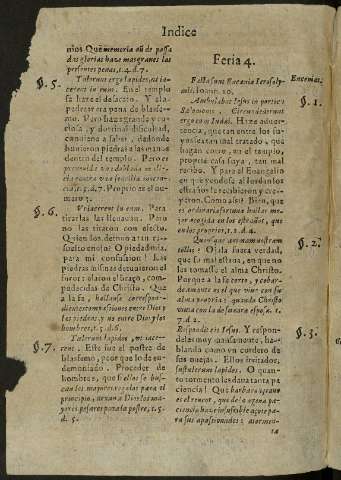 Indice
nios Que memoria aū de passa
das glorias haze mas graues las
presentes penas, t. 4. d. 7.
§. 5.
Tulerunt ergo lapides, vt ia-
cerent in eum. En el templo
se haze el desacato. Y a la
pedrera en pena de blasfe-
mo. Pero haze grande y cu-
riosa, y dotrinal dificultad,
dadonde
huuieron piedras a las manos
dentro del templo. Pero es
cia. t. 5. d. 7. Proprio es el nu-
mero 3.
§. 6.
Vt iacerent in eum. Para
tirarlas las lleuaron. Pero
no las tiraron con efecto.
Quien los detuuo a tan re-
suelto enojo? O piedad mia,
para mi confusion! Las
piedras mismas detuuieron el
furor: o lataron el braço, com-
padecidas de Christo. Que
a la fe, hallanse correspon-
dientes compassiones entre Dios y
las piedras, y no entre Dios y los
hombres, t. 5. d. 6.
§. 7.
Tulerunt lapides, vt iace-
rent. Este fue el postre de
blasfemo, peor que lo de en-
demoniado. Proceder de
hombres, que si ellos se bus-
can los mayores regalos para el
principio, acuan a Dios los ma-
yores pesares para la postre, t. 5.
d. 5.
Feria 4.
Encenias.
§. 1.
Facta sunt Encænia Ierosoly-
mis. Ioann. 10.
Ambulabat Iesus in porticu
Salomonis. Circundederunt
ergo eum Iudæi. Haze aduer-
tencia, que tan entre los su-
yos estan mal tratado, que
hagan corro, en el templo,
propria casa suya, tan mal
recibo. Y para el Euangelio
en que vendose al Iordan los
estraños le recibieron y cre-
yeron. Como assi? Bien, que
es ordinaria fortuna hallar me-
jor acogida en los estraños, que
en los proprios, t. 2. d. 4.
§. 2.
Quousque animam nostram
tollis? Ojala fuera verdad,
que su mal estaua, en que no
les tomasse el alma Christo.
Porque a la fe corto, y cobar-
demente es el que viue con su
alma propria: quando Christo
viua con la de su cara esposa. t.
7. d. 2.
§. 3.
Respondit eis Iesus. Y respon-
deles muy mansamente, ha-
blando como vn cordero de
sus ouejas. Ellos irritados,
sustulerunt lapides. O quan-
to tormento les daua tanta pa-
ciencia! Que barbara vgano
es el rencor, que de la agena pa-
ciencia haze insufrible açote pa-
ra sus apassionados: atormen-
ta